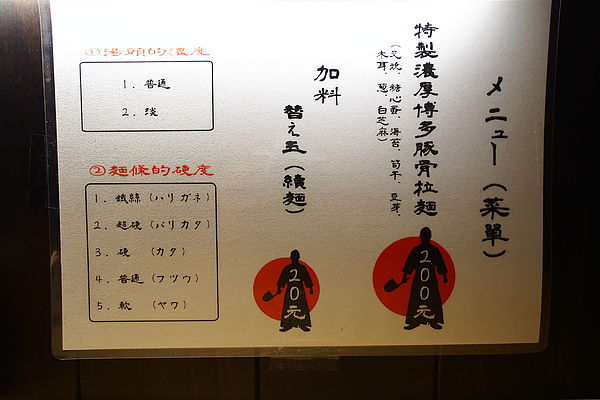 メニュー(菜單)
特製濃厚博多豚骨拉麵
(叉燒、糖心蛋、海苔、筍干、豆芽、
木耳、蔥、白芝麻)
200元
加料
替え玉(續麵)
20元
①湯頭的濃度
1. 普通
2. 淡
②麵條的硬度
1. 鐵絲(ハリガネ)
2. 超硬(バリカタ)
3. 硬 (カタ)
4. 普通(フツウ)
5. 軟 (ヤワ)